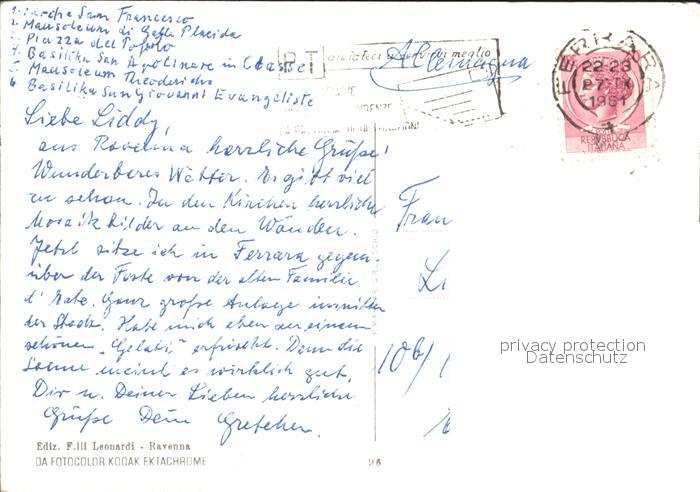 1. Kirche San Francesco
2. Mausoleum di Galla Placida
3. Piazza del Popolo
4. Basilika San Apolinare in Classe
5 Mausoleum Theoderichs
6 Basilika San Giovanni Evangeliste
Liebe Liddy,
aus Ravenna herrliche Grüße!
Wunderbares Wetter. Es gibt viel
zu sehen. In den Kirchen herrliche
Mosaikbilder an den Wänden.
Jetzt sitze ich in Ferrara gegen-
über der Feste von der alten Familie
d'Este. Ganz große Anlage inmitten
der Stadt. Habe mich eben an einem
schönen "Gelati" erfrischt. Denn die
Sonne meint es wirklich gut.
Dir u. Deiner Lieben herzliche
Grüße Dein Gretchen.
PT aiutateci a servirvi meglio
Allemagna
FERRARA
22-23
1961
REPUBBLICA
ITALIANA
Frau
106/
privacy protection
Datenschutz
Ediz. F.lli Leonardi - Ravenna
DA FOTOCOLOR KODAK EKTACHROME
96